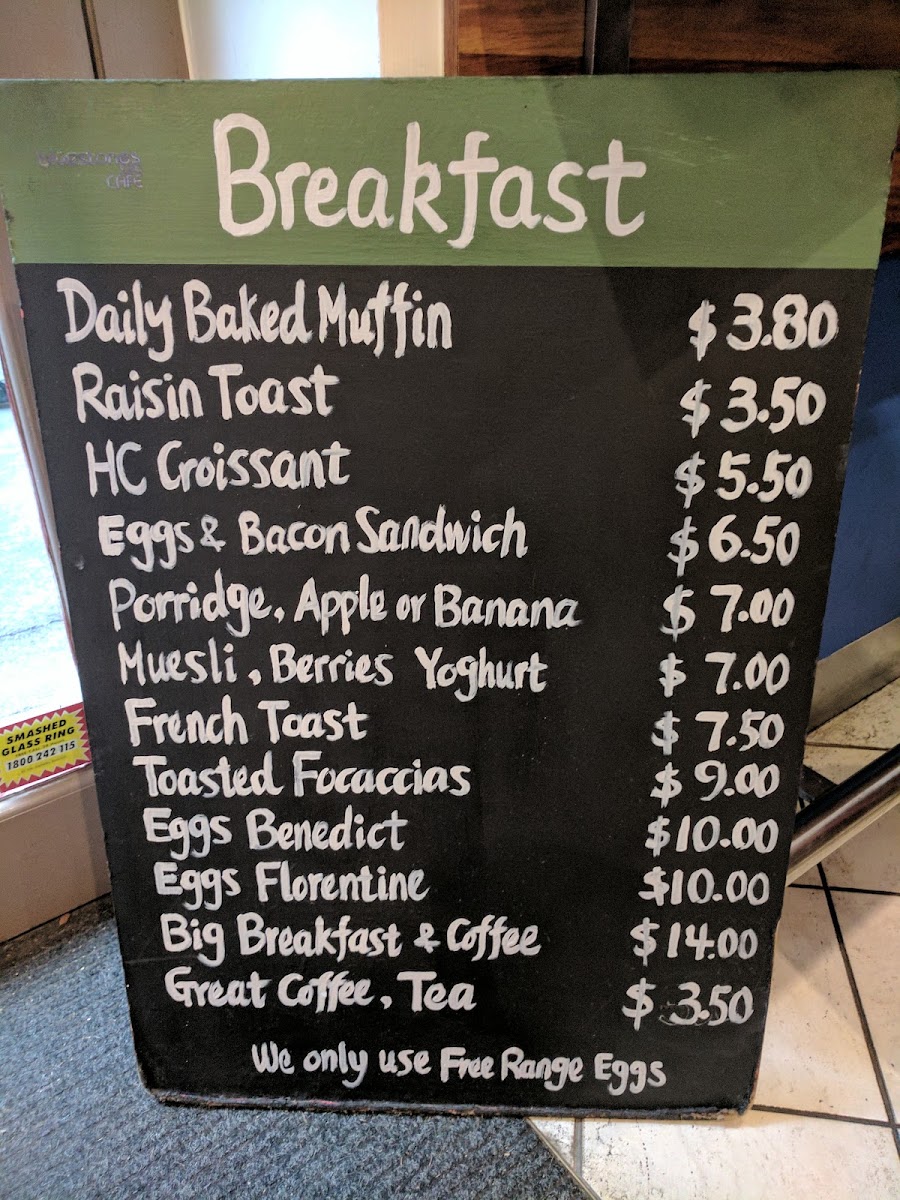 Breakfast
CAFE
Daily Baked Muffin $3.80
Raisin Toast $3.50
HC Croissant $5.50
Eggs & Bacon Sandwich $6.50
Porridge, Apple or Banana $7.00
Muesli, Berries Yoghurt $7.00
French Toast $7.50
Toasted Focaccias $9.00
Eggs Benedict $10.00
Eggs Florentine $10.00
Big Breakfast & Coffee $14.00
Great Coffee, Tea $3.50
We only use Free Range Eggs
SMASHED
GLASS RING
1800 242 115